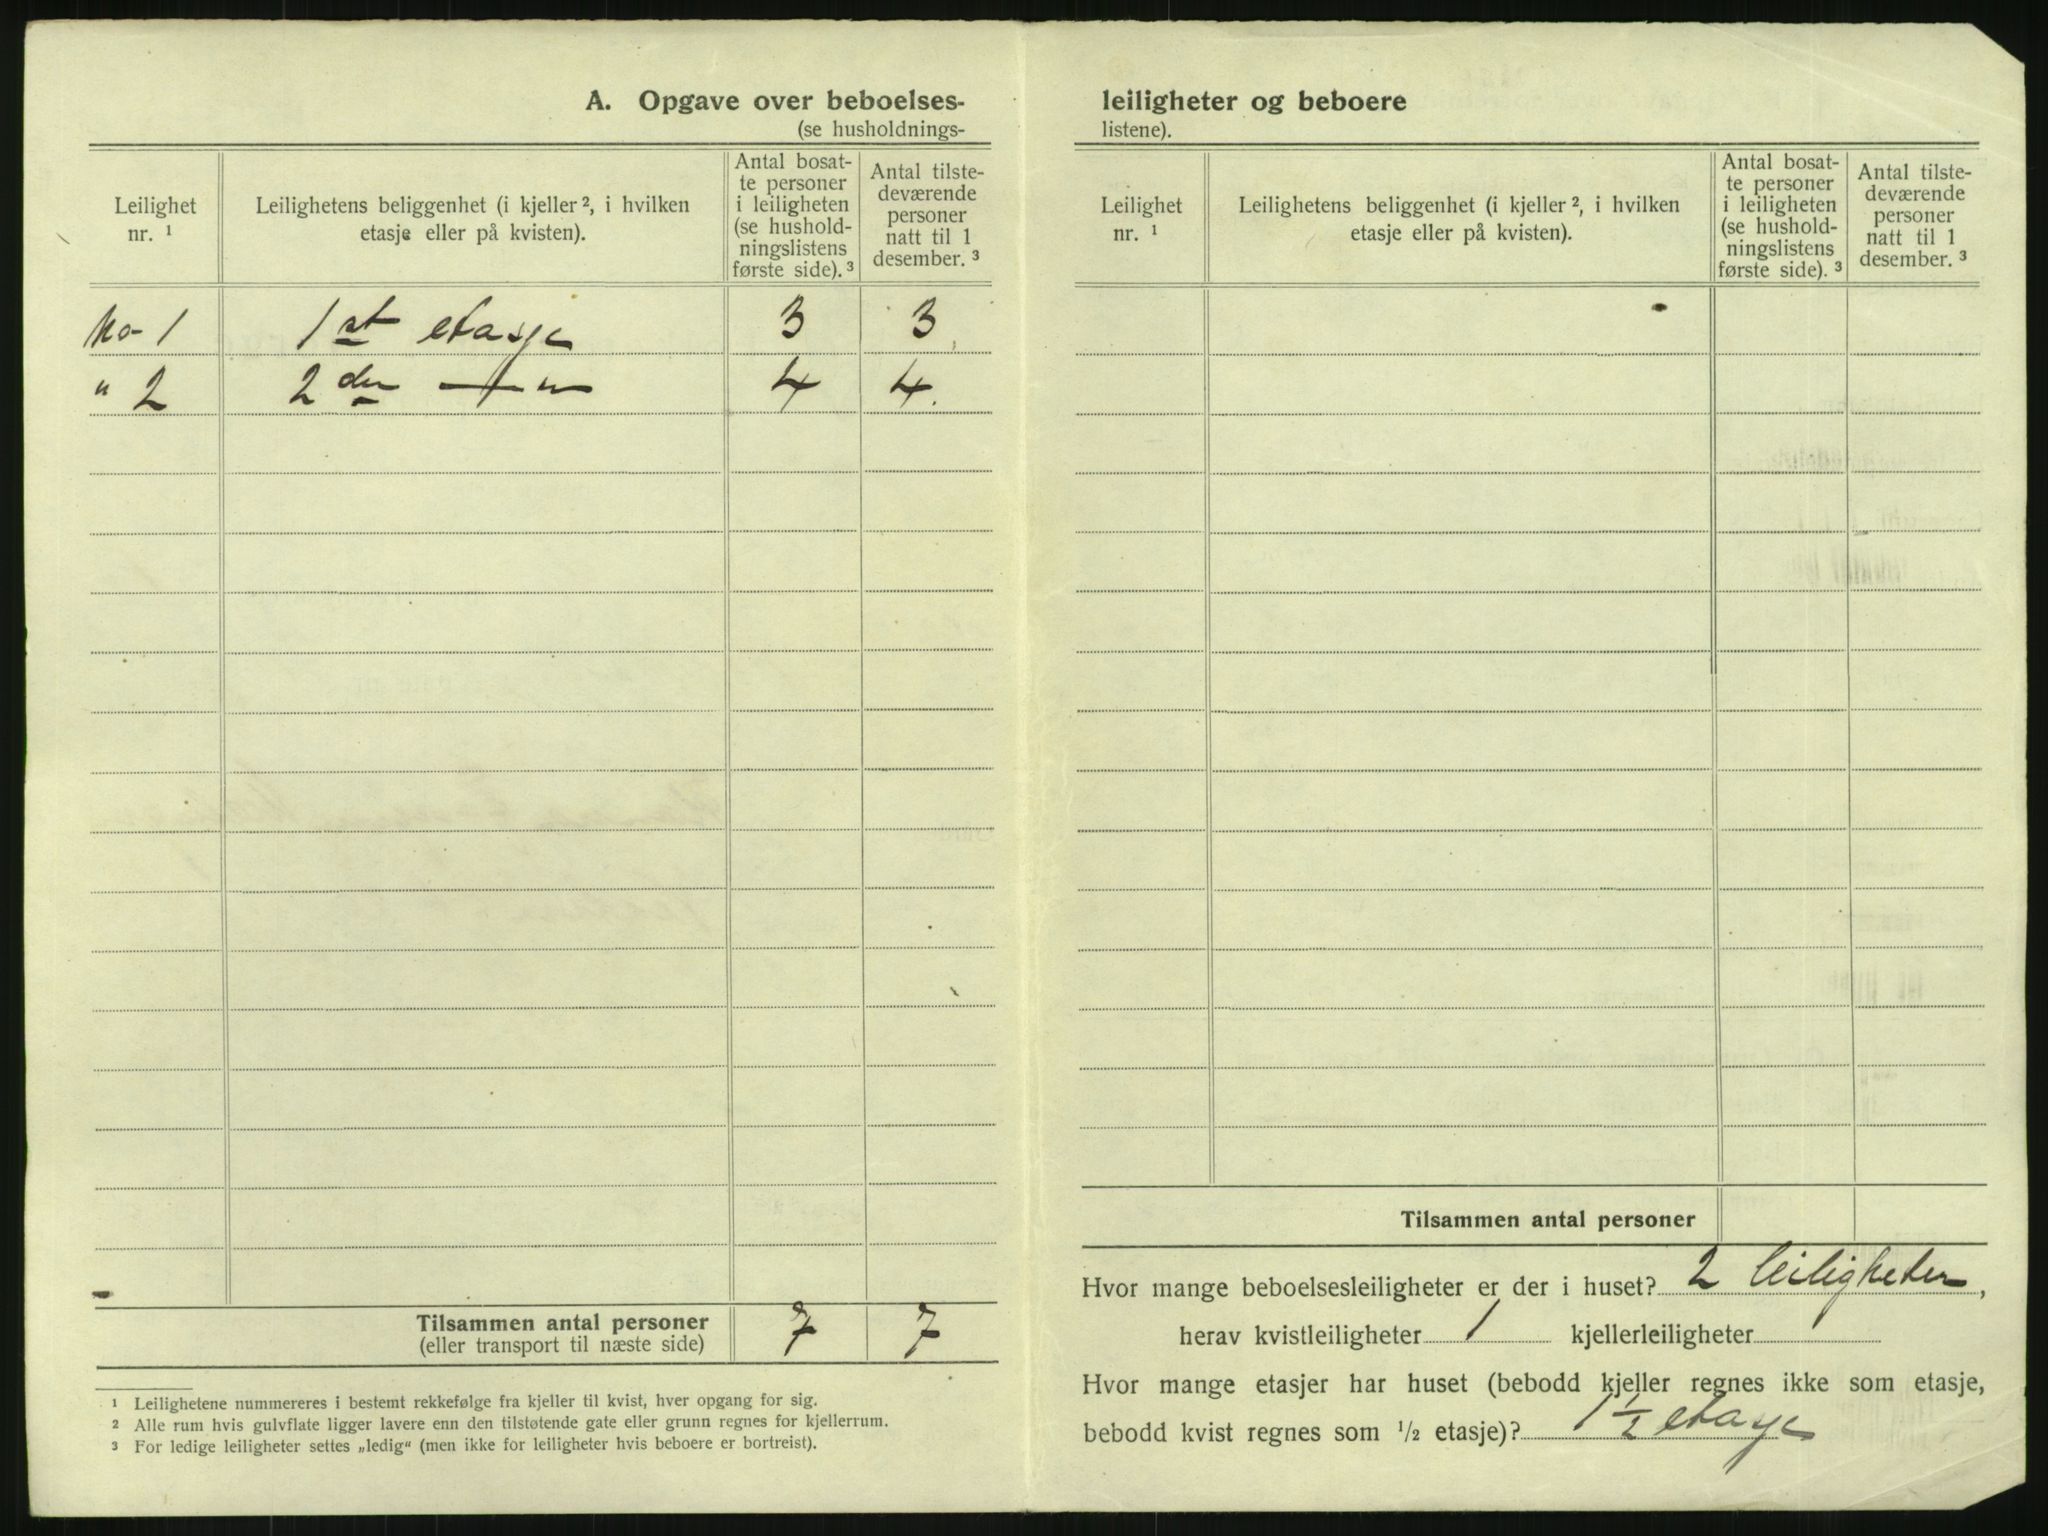 A. Opgave over beboelses-
(se husholdnings-
Leilighet
nr. ¹
Leilighetens beliggenhet (i kjeller ², i hvilken
etasje eller på kvisten).
Antal bosat-
te personer
i leiligheten
(se hushold-
ningslistens
første side). ³
Antal tilste-
deværende
personer
natt til 1
desember. ³
No 1 1st etasje 3 3
" 2 2den —"— 4 4.
Tilsammen antal personer 7 7
(eller transport til næste side)
¹ Leilighetene nummereres i bestemt rekkefølge fra kjeller til kvist, hver opgang for sig.
² Alle rum hvis gulvflate ligger lavere enn den tilstøtende gate eller grunn regnes for kjellerrum.
³ For ledige leiligheter settes „ledig“ (men ikke for leiligheter hvis beboere er bortreist).
leiligheter og beboere
listene).
Leilighet
nr. ¹
Leilighetens beliggenhet (i kjeller ², i hvilken
etasje eller på kvisten).
Antal bosat-
te personer
i leiligheten
(se hushold-
ningslistens
første side). ³
Antal tilste-
deværende
personer
natt til 1
desember. ³
Tilsammen antal personer
Hvor mange beboelsesleiligheter er der i huset? 2 leiligheter,
herav kvistleiligheter 1 kjellerleiligheter
Hvor mange etasjer har huset (bebodd kjeller regnes ikke som etasje,
bebodd kvist regnes som ½ etasje)? 1 ½ etasje